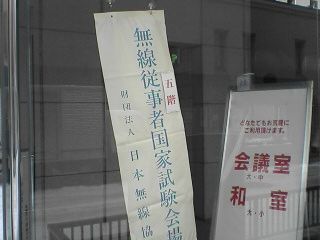 五階
無線従事者国家試験会場
財団法人 日本無線協
どなたでもお気軽に
ご利用頂けます。
会議室
大・中
和室
大・小